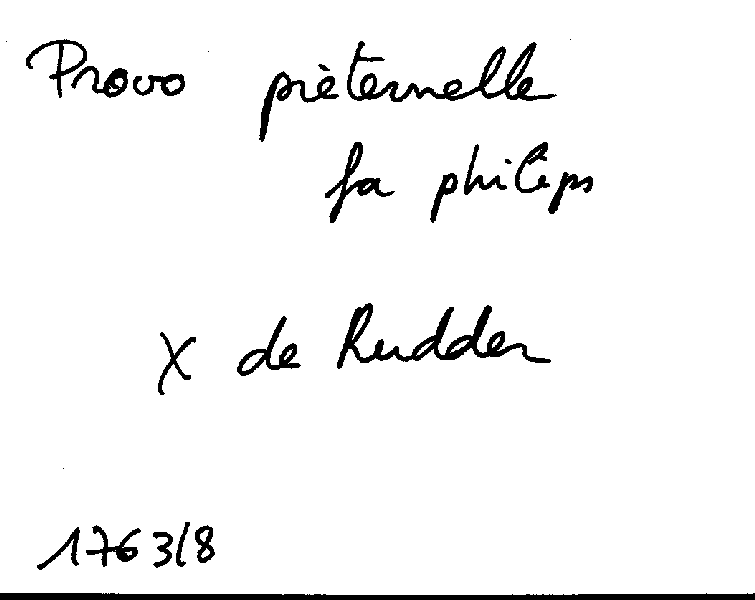 Provo pièternelle
fa philips
X de Rudder
1763/8